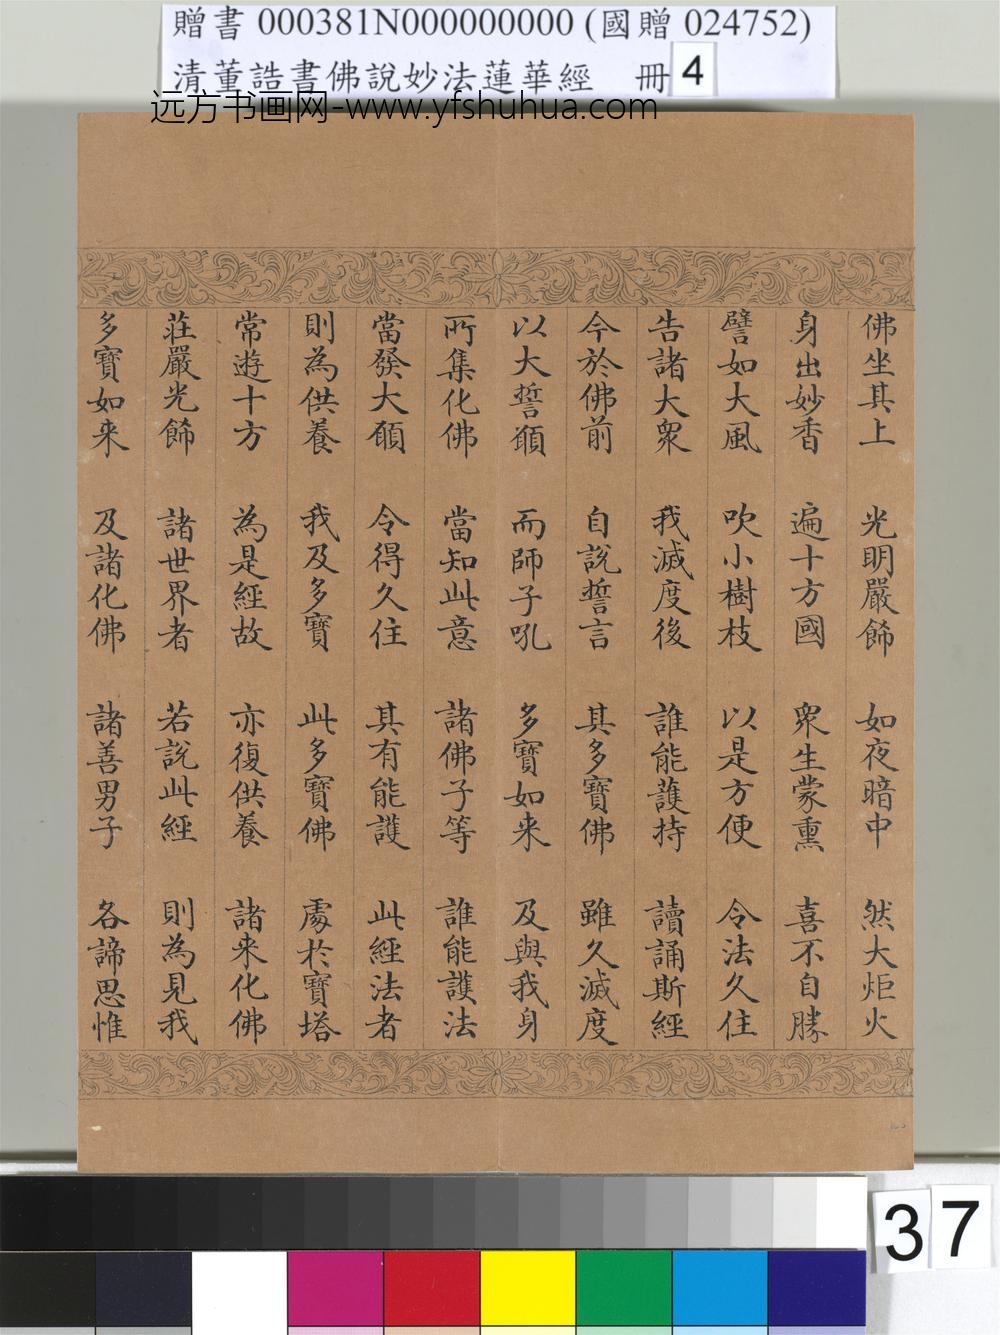 贈書 000381N000000000 (國贈 024752)
清董誥書佛說妙法蓮華經 冊 4
远方书画网-www.yfshuhua.com
佛坐其上 光明嚴飾 如夜暗中 然大炬火
身出妙香 遍十方國 衆生蒙熏 喜不自勝
譬如大風 吹小樹枝 以是方便 令法久住
告諸大衆 我滅度後 誰能護持 讀誦斯經
今於佛前 自說誓言 其多寶佛 雖久滅度
以大誓願 而師子吼 多寶如来 及與我身
所集化佛 當知此意 諸佛子等 誰能護法
當發大願 令得久住 其有能護 此經法者
則為供養 我及多寶 此多寶佛 處於寶塔
常遊十方 為是經故 亦復供養 諸来化佛
莊嚴光飾 諸世界者 若說此經 則為見我
多寶如来 及諸化佛 諸善男子 各諦思惟
37